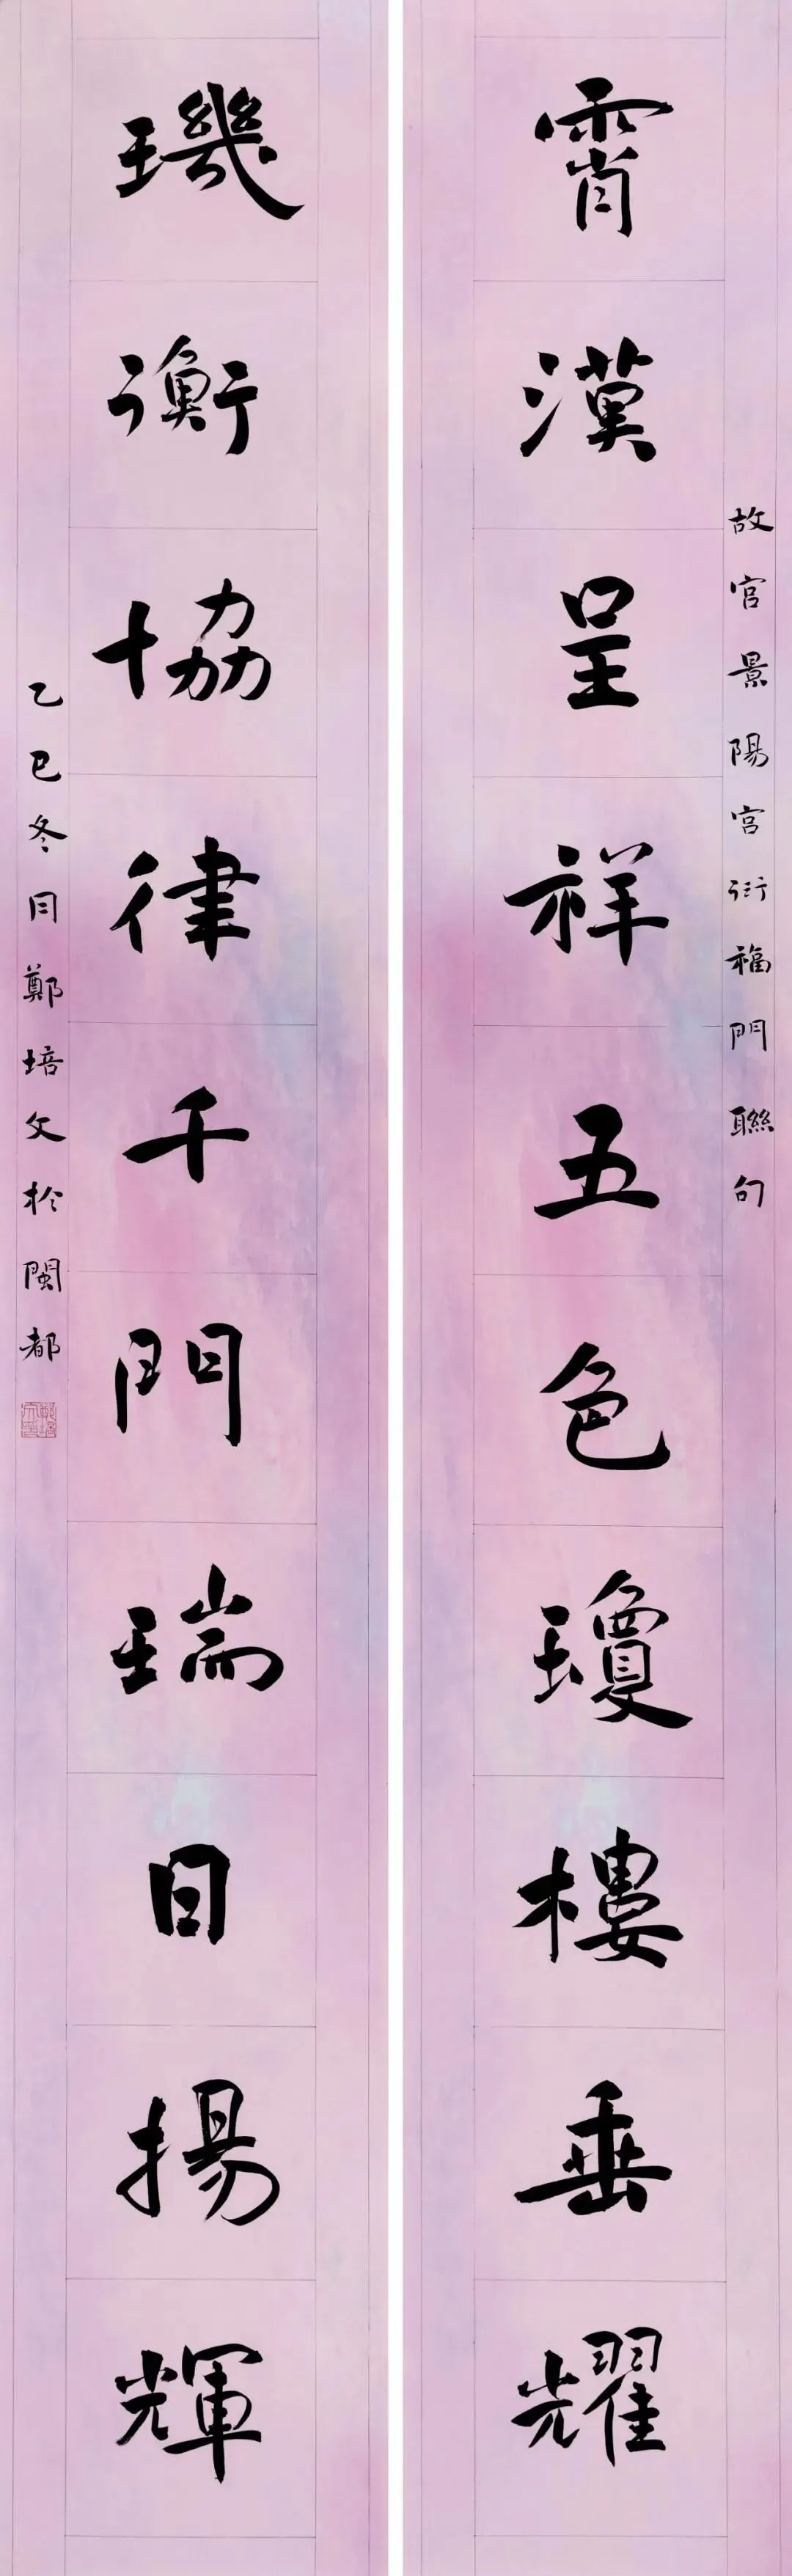 故宮景陽宮衍福門聯句
霄漢呈祥五色瓊樓垂耀
璣衡協律千門瑞日揚輝
乙巳冬月鄭培文於閩都